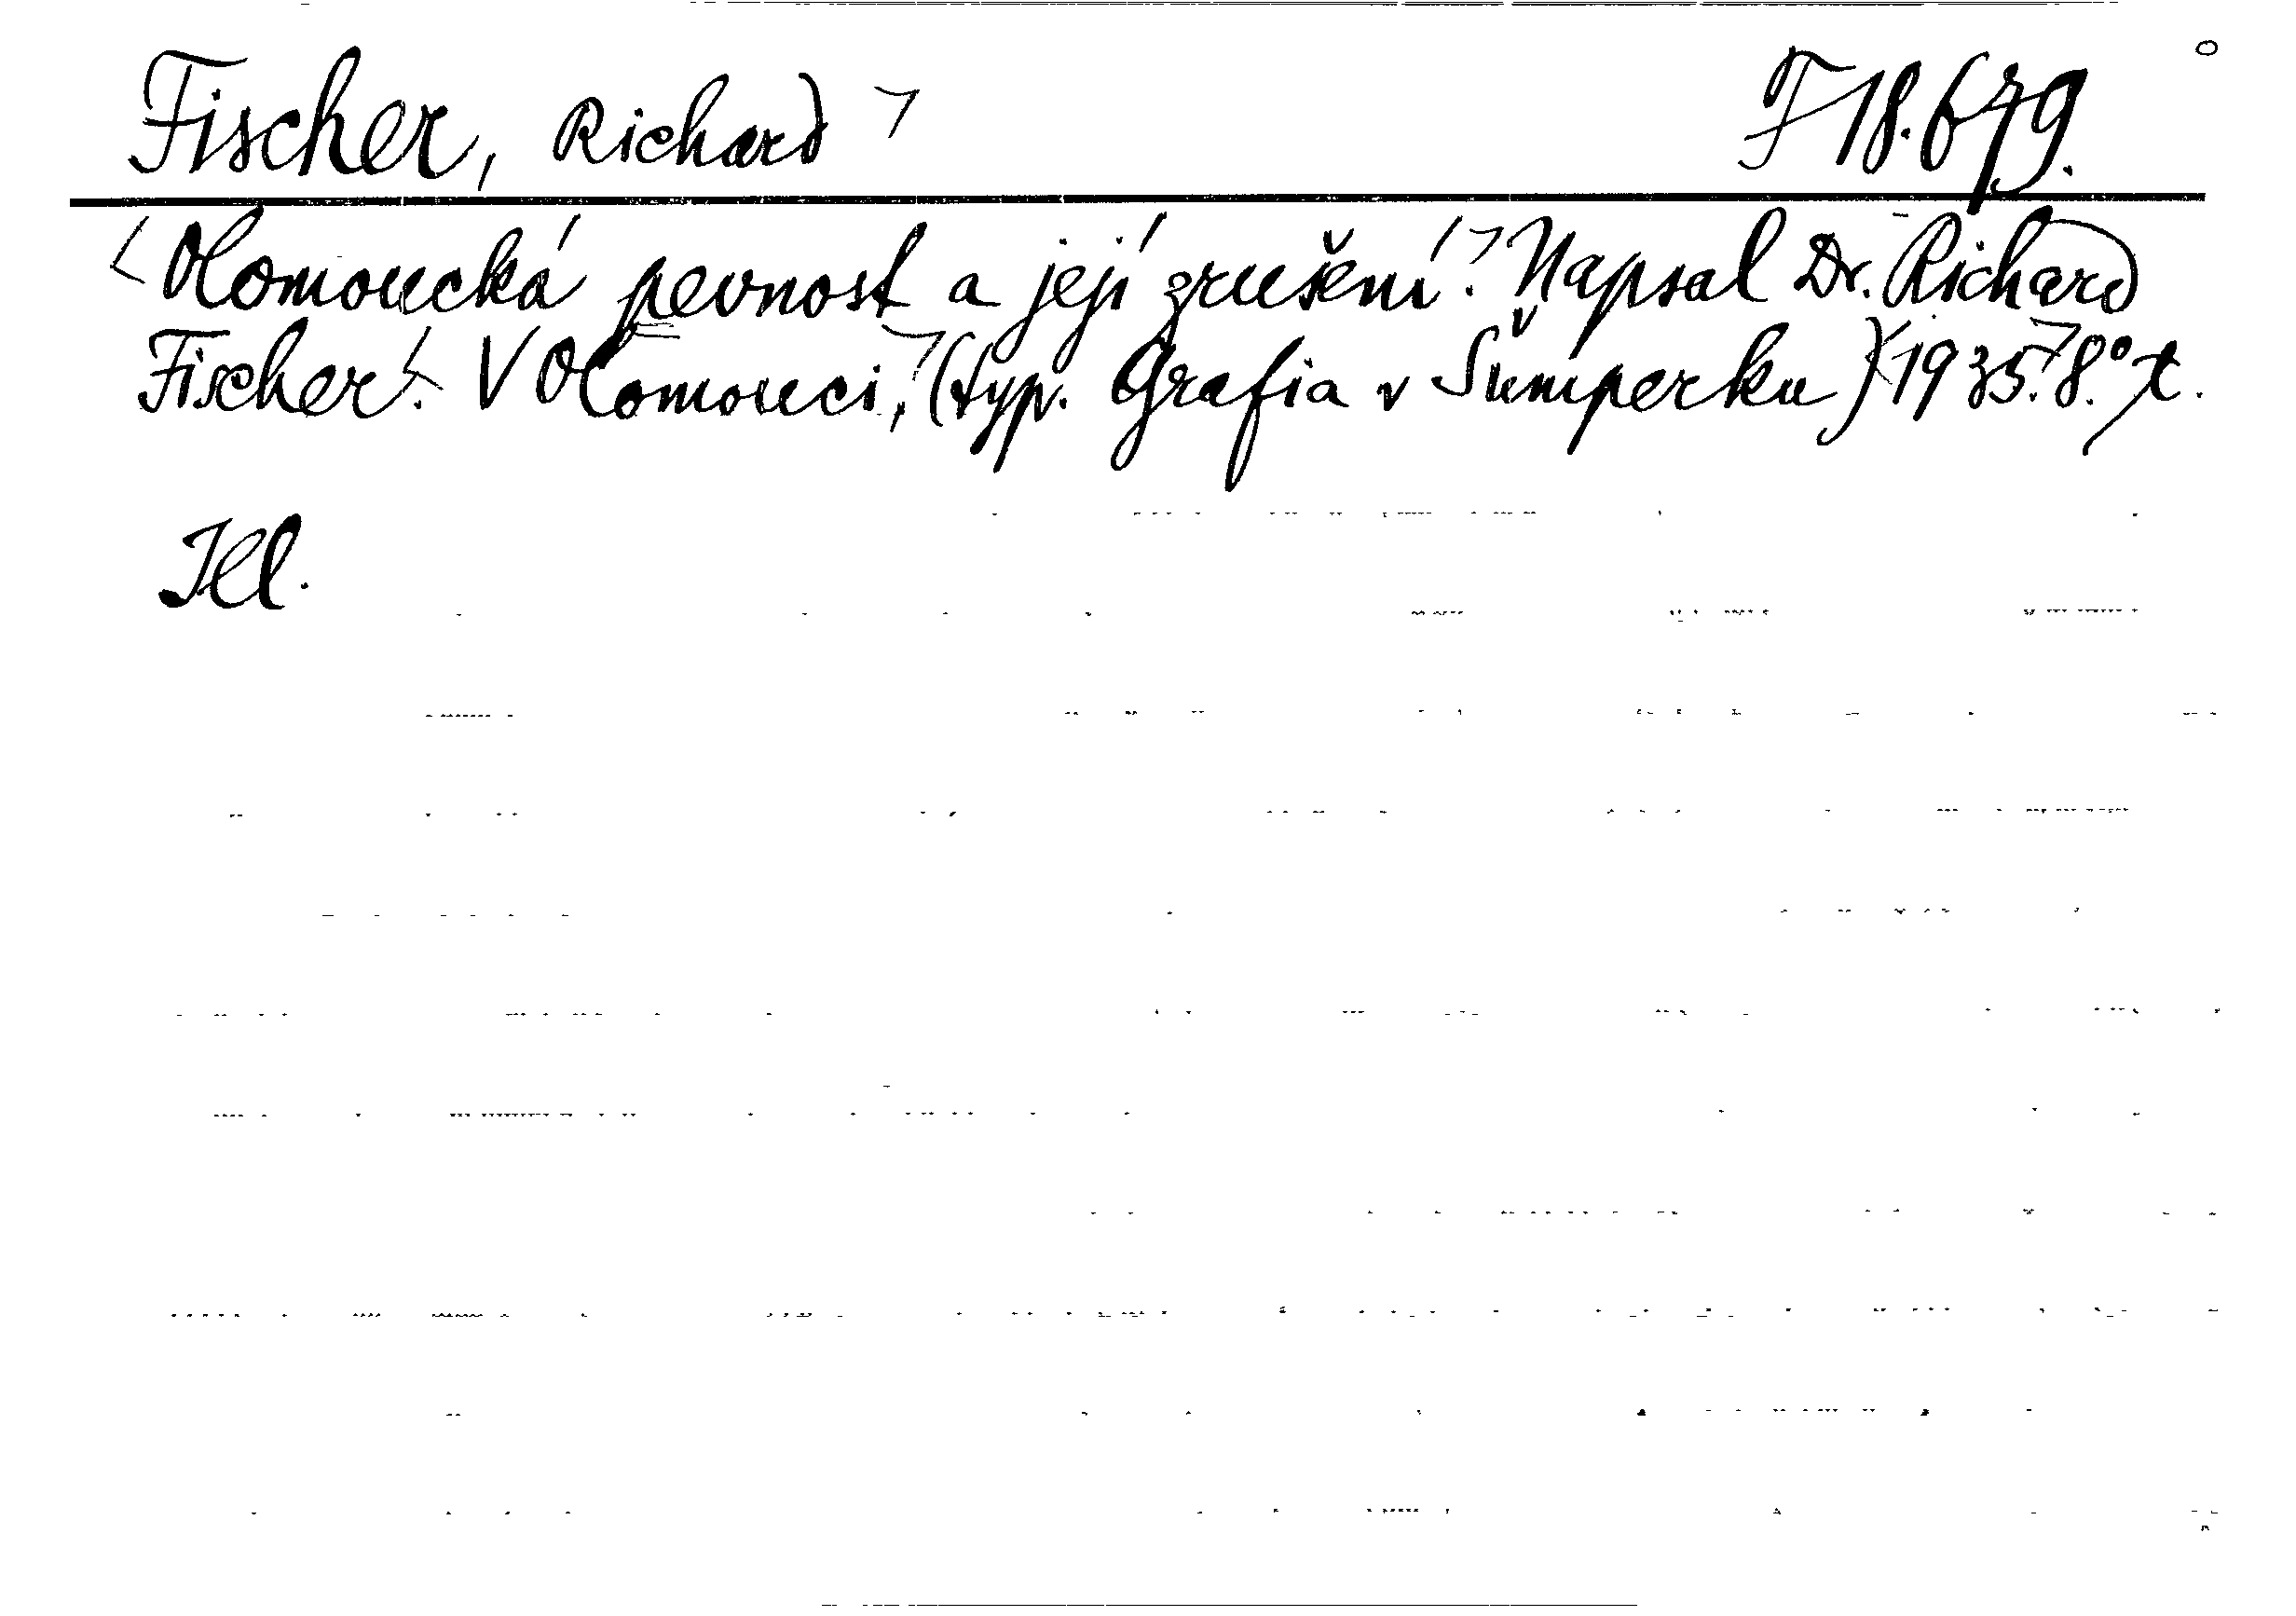 Fischer, Richard ㄱ F 18.679.
<Olomoucká pevnost a její zrušení.ㄱ Napsal Dr. Richard
Fischer<. V Olomouci,ㄱ (typ. Grafia v Šumperku) <1935.ㄱ 8.°
Ill.